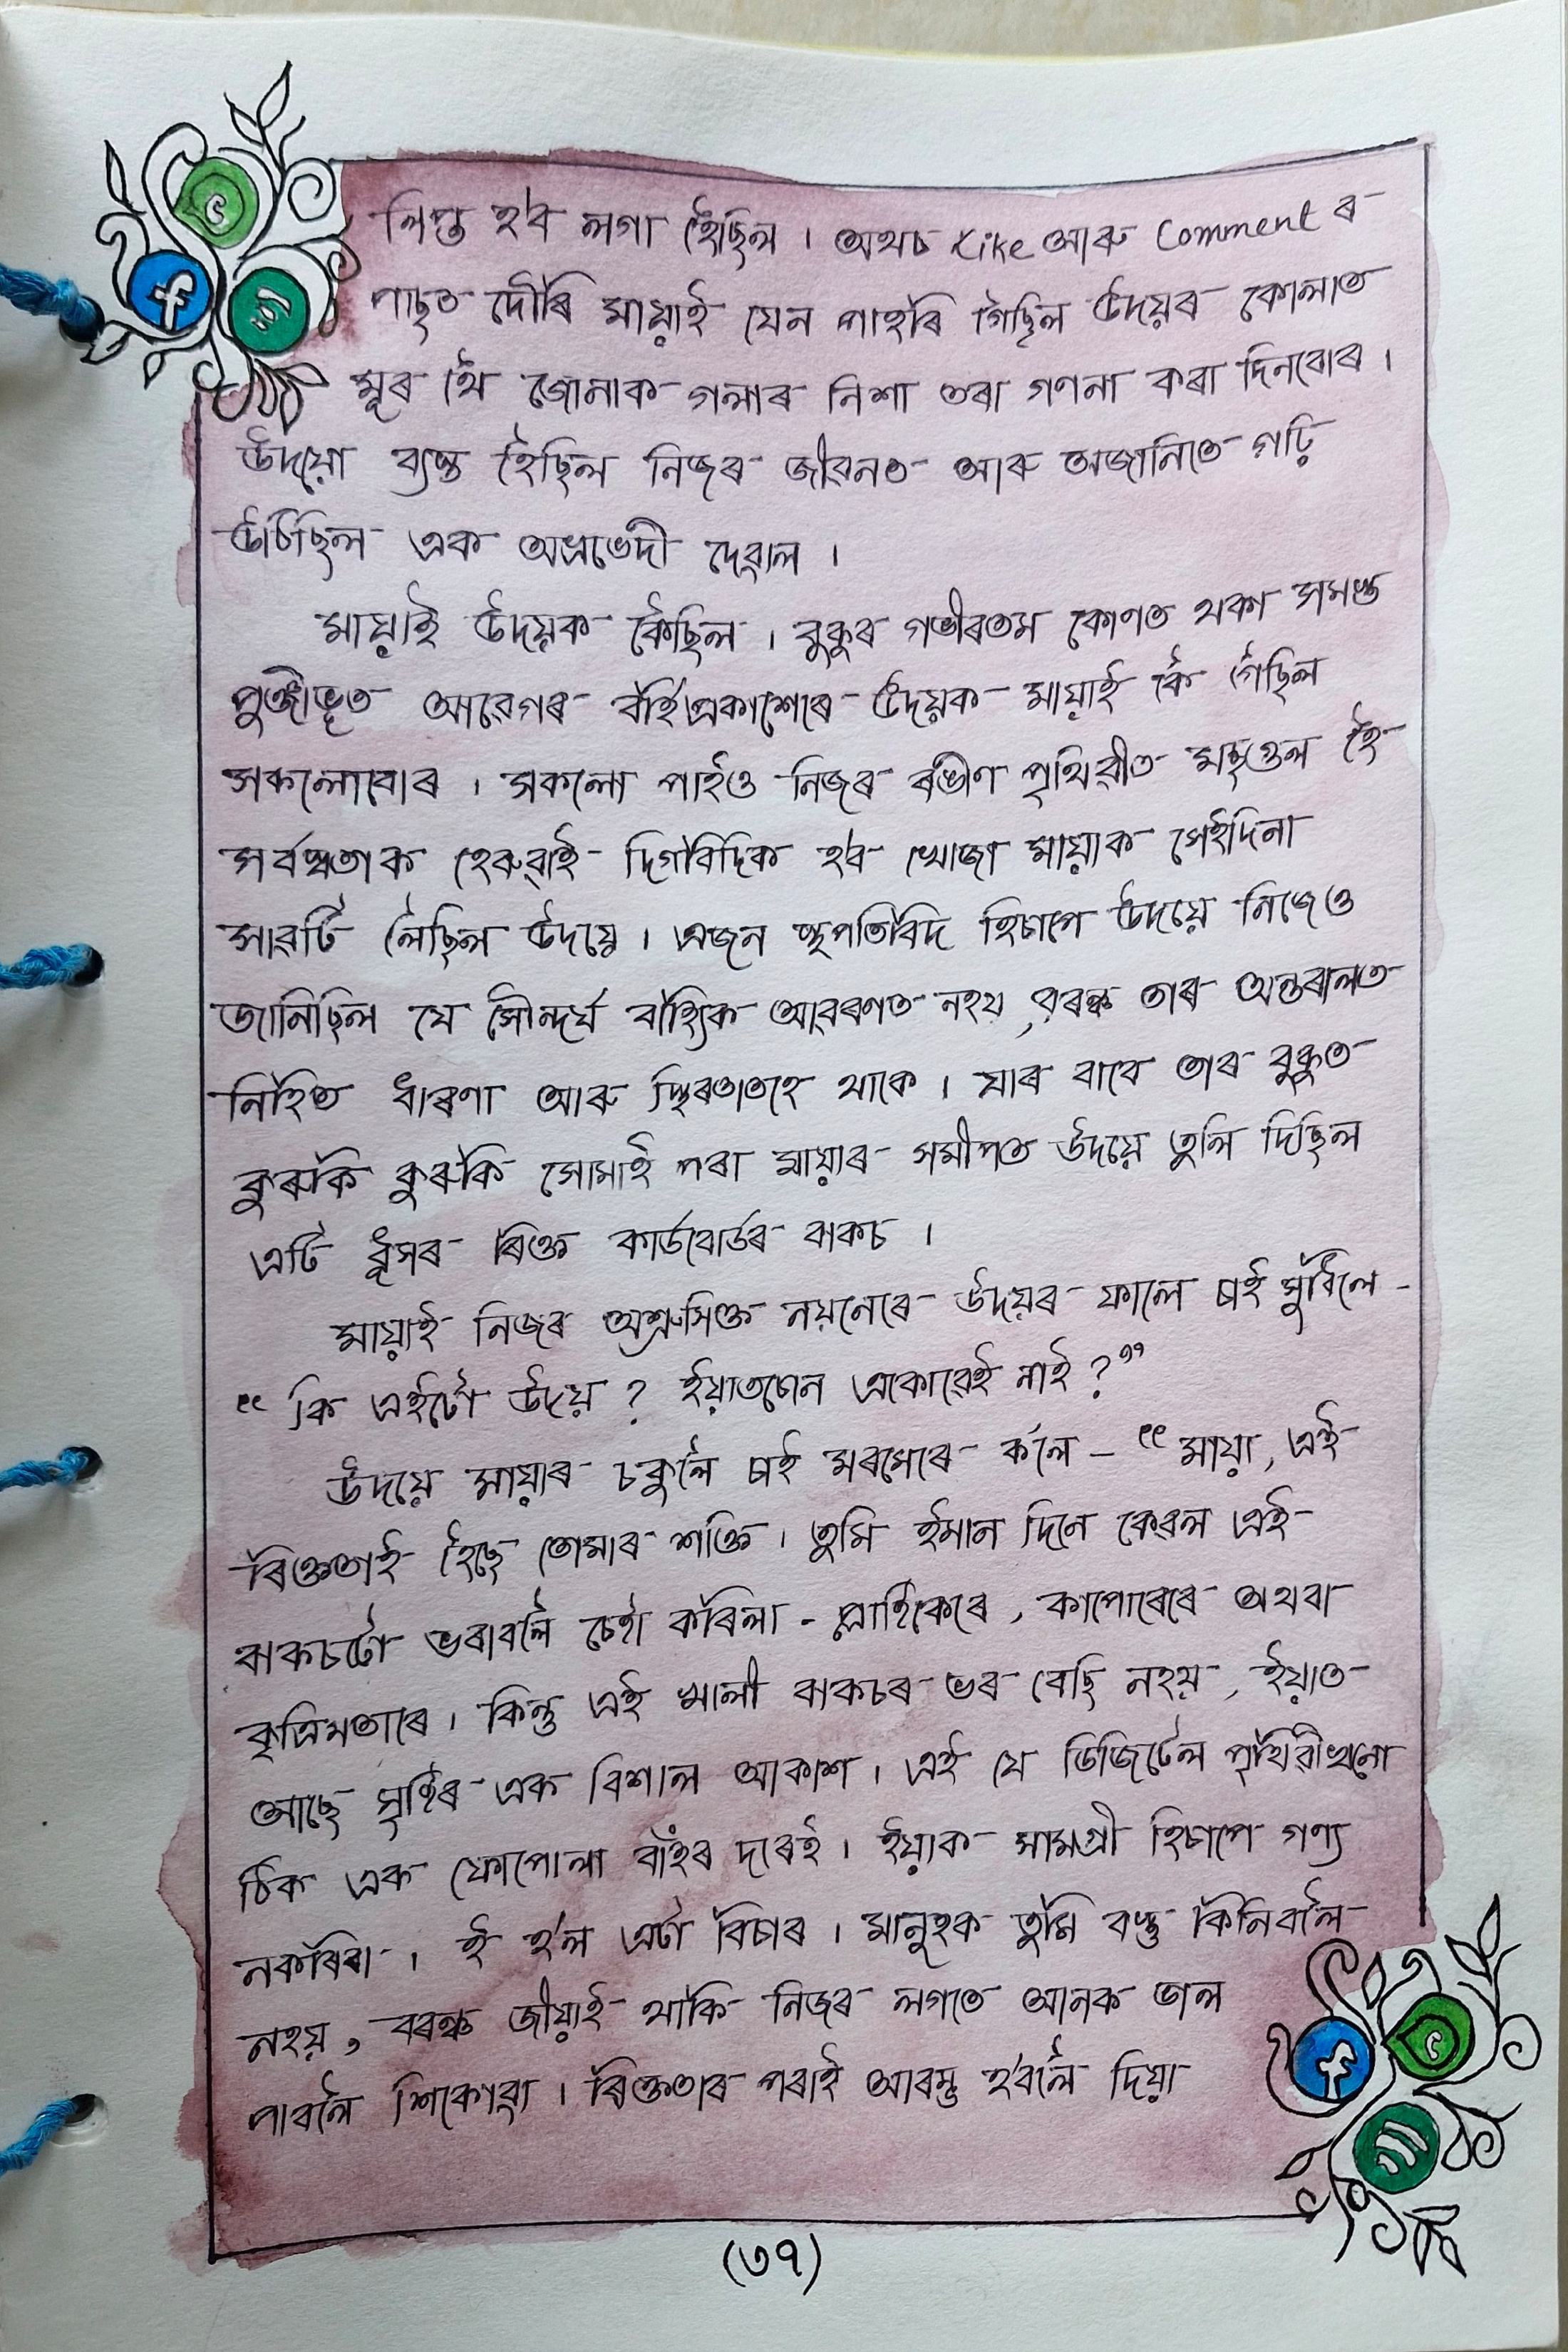 লিপ্ত হ'ব লগা হৈছিল । অথচ Like আৰু Comment ৰ
পাছত দৌৰি মায়াই যেন পাহৰি গৈছিল উদয়ৰ কোলাত
মূৰ থৈ জোনাক গলাৰ নিশা তৰা গণনা কৰা দিনবোৰ ।
উদয়ো ব্যস্ত হৈছিল নিজৰ জীৱনত আৰু অজানিতে গঢ়ি
উঠিছিল এক অভ্ৰভেদী দেৱাল ।
মায়াই উদয়ক কৈছিল । বুকুৰ গভীৰতম কোণত থকা সমস্ত
পুঞ্জীভূত আৱেগৰ বৰ্হিপ্ৰকাশেৰে উদয়ক মায়াই কৈ গৈছিল
সকলোবোৰ । সকলো পাইও নিজৰ ৰঙীণ পৃথিৱীত মছগুল হৈ
সৰ্বস্বতাক হেৰুৱাই দিগবিদিক হ'ব খোজা মায়াক সেইদিনা
সাৱটি লৈছিল উদয়ে । এজন স্থপতিবিদ হিচাপে উদয়ে নিজেও
জানিছিল যে সৌন্দৰ্য বাহ্যিক আৱৰণত নহয়, বৰঞ্চ তাৰ অন্তৰালত
নিহিত ধাৰণা আৰু স্থিৰতাতহে থাকে । যাৰ বাবে তাৰ বুকুত
কুৰুকি কুৰুকি সোমাই পৰা মায়াৰ সমীপত উদয়ে তুলি দিছিল
এটি ধূসৰ ৰিক্ত কাৰ্ডবোৰ্ডৰ বাকচ ।
মায়াই নিজৰ অশ্ৰুসিক্ত নয়নেৰে উদয়ৰ ফালে চাই সুধিলে -
“ কি এইটো উদয় ? ইয়াতচোন একোৱেই নাই ? ”
উদয়ে মায়াৰ চকুলৈ চাই মৰমেৰে ক'লে – “ মায়া, এই
ৰিক্ততাই হৈছে তোমাৰ শক্তি । তুমি ইমান দিনে কেৱল এই
বাকচটো ভৰাবলৈ চেষ্টা কৰিলা - প্লাষ্টিকেৰে, কাপোৰেৰে অথবা
কৃত্ৰিমতাৰে । কিন্তু এই খালী বাকচৰ ভৰ বেছি নহয়, ইয়াত
আছে সৃষ্টিৰ এক বিশাল আকাশ । এই যে ডিজিটেল পৃথিৱীখনো
ঠিক এক ফোপোলা বাঁহৰ দৰেই । ইয়াক সামগ্ৰী হিচাপে গণ্য
নকৰিবা । ই হ'ল এটা বিচাৰ । মানুহক তুমি বস্তু কিনিবলৈ
নহয়, বৰঞ্চ জীয়াই থাকি নিজৰ লগতে আনক ভাল
পাবলৈ শিকোৱা । ৰিক্ততাৰ পৰাই আৰম্ভ হ'বলৈ দিয়া
(৩৭)